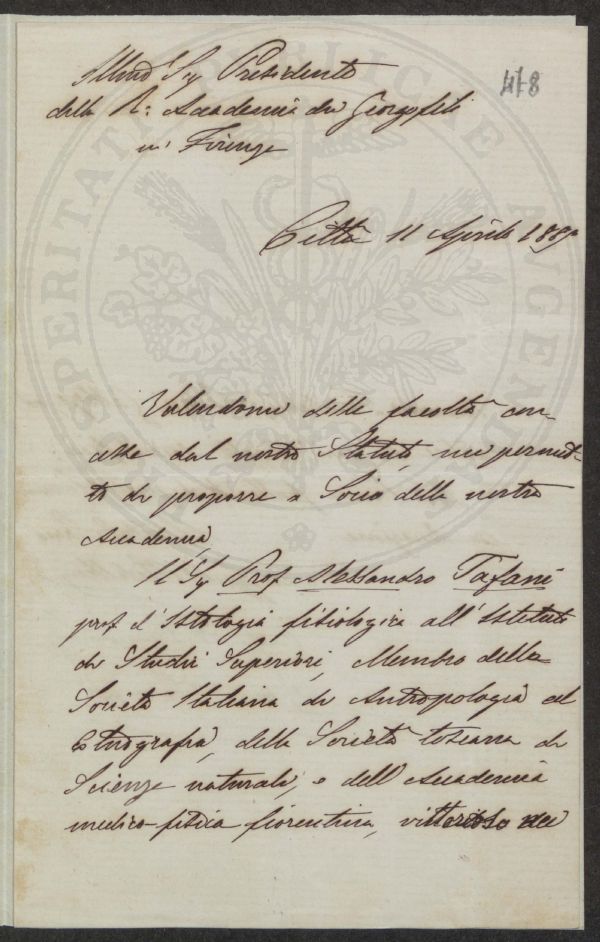 478
Illmo Sig Presidente
della R: Accademia dei Georgofili
in Firenze
Città 11 Aprile
Valendomi delle facoltà con-
cesse dal nostro Statuto, mi permet-
to di proporre a Socio della nostra
Accademia,
Il Sig Prof Alessandro Tafani
prof d'Istologia fisiologica all'Istituto
di Studii Superiori, Membro della
Società Italiana di Antropologia ed
Etnografia, della Società toscana di
Scienze naturali, e dell'Accademia
medico-fisica fiorentina,
PROSPERITATI PUBLICAE AUGENDAE